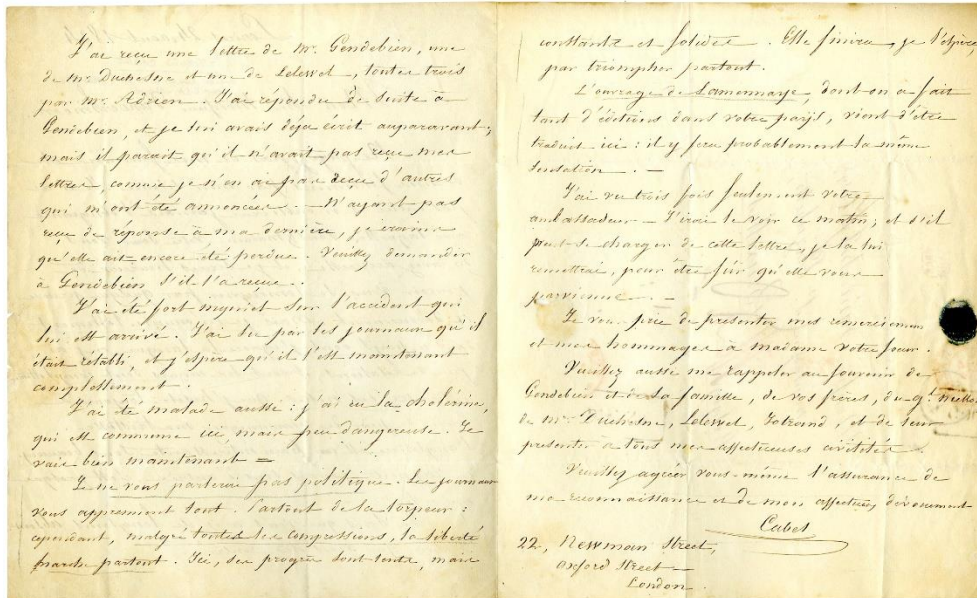 J'ai reçu une lettre de Mr. Gendebien, une
de Mr. Duchesne et une de Lelewel, toutes trois
par Mr. Adrien. J'ai répondu de suite à
Gendebien, et je lui avais déja écrit auparavant;
mais il parait qu'il n'avait pas reçu mes
lettres, comme je n'en ai pas reçu d'autres
qui m'ont été annoncées. — N'ayant pas
reçu de réponse à ma dernière, je crains
qu'elle ait encore été perdue. Veuillez demander
à Gendebien s'il l'a reçue.
J'ai été fort inquiet sur l'accident qui
lui est arrivé. J'ai lu par les journaux qu'il
était rétabli, et j'espère qu'il l'est maintenant
complettement.
J'ai été malade aussi : j'ai eu la cholérine,
qui est commune ici, mais peu dangereuse. Je
vais bien maintenant =
Je ne vous parlerai pas politique. Les journaux
vous apprennent tout. Partout de la torpeur :
cependant, malgré toutes les compressions, la liberté
marche partout. Ici, ses progrès sont lents, mais
constants et solides. Elle finira, je l'espère,
par triompher partout.
L'ouvrage de Lamennaye, dont on a fait
tant d'éditions dans votre pays, vient d'être
traduit ici : il y fera probablement la même
sensation. —
J'ai vu trois fois seulement votre
ambassadeur — J'irai le voir ce matin; et s'il
peut se charger de cette lettre, je la lui
remettrai, pour être sûr qu'elle vous
parvienne —
Je vous prie de présenter mes remerciemens
et mes hommages à madame votre soeur.
Veuillez aussi me rappeler au souvenir de
Gendebien et de sa famille, de vos frères, du gl.
de Mr. Duchesne, Lelewel, et de leur
présenter à tous mes affectueuses civilités.
Veuillez agréer vous-même l'assurance de
ma reconnaissance et de mon affectueux dévouement
Cabet
22, Newman Street,
Oxford Street —
London.